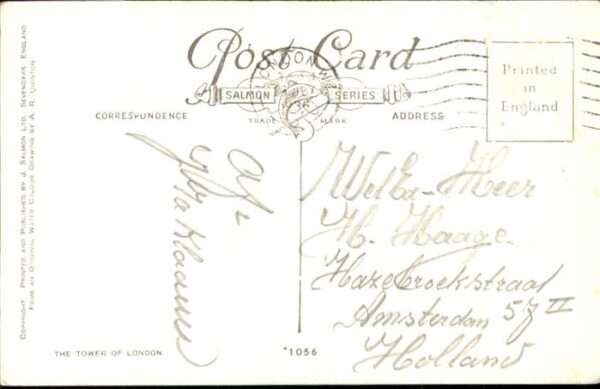 Post Card
SALMON SERIES
TRADE MARK
CORRESPONDENCE
ADDRESS
Printed
in
England
LONDON
COPYRIGHT. PRINTED AND PUBLISHED BY J. SALMON LTD, SEVENOAKS, ENGLAND
FROM AN ORIGINAL WATER COLOUR DRAWING BY A. R. QUINTON
Afz
WelEd. Heer
H. Haage
Hazebroekstraat
Amsterdam 57 II
Holland
THE TOWER OF LONDON.
*1056